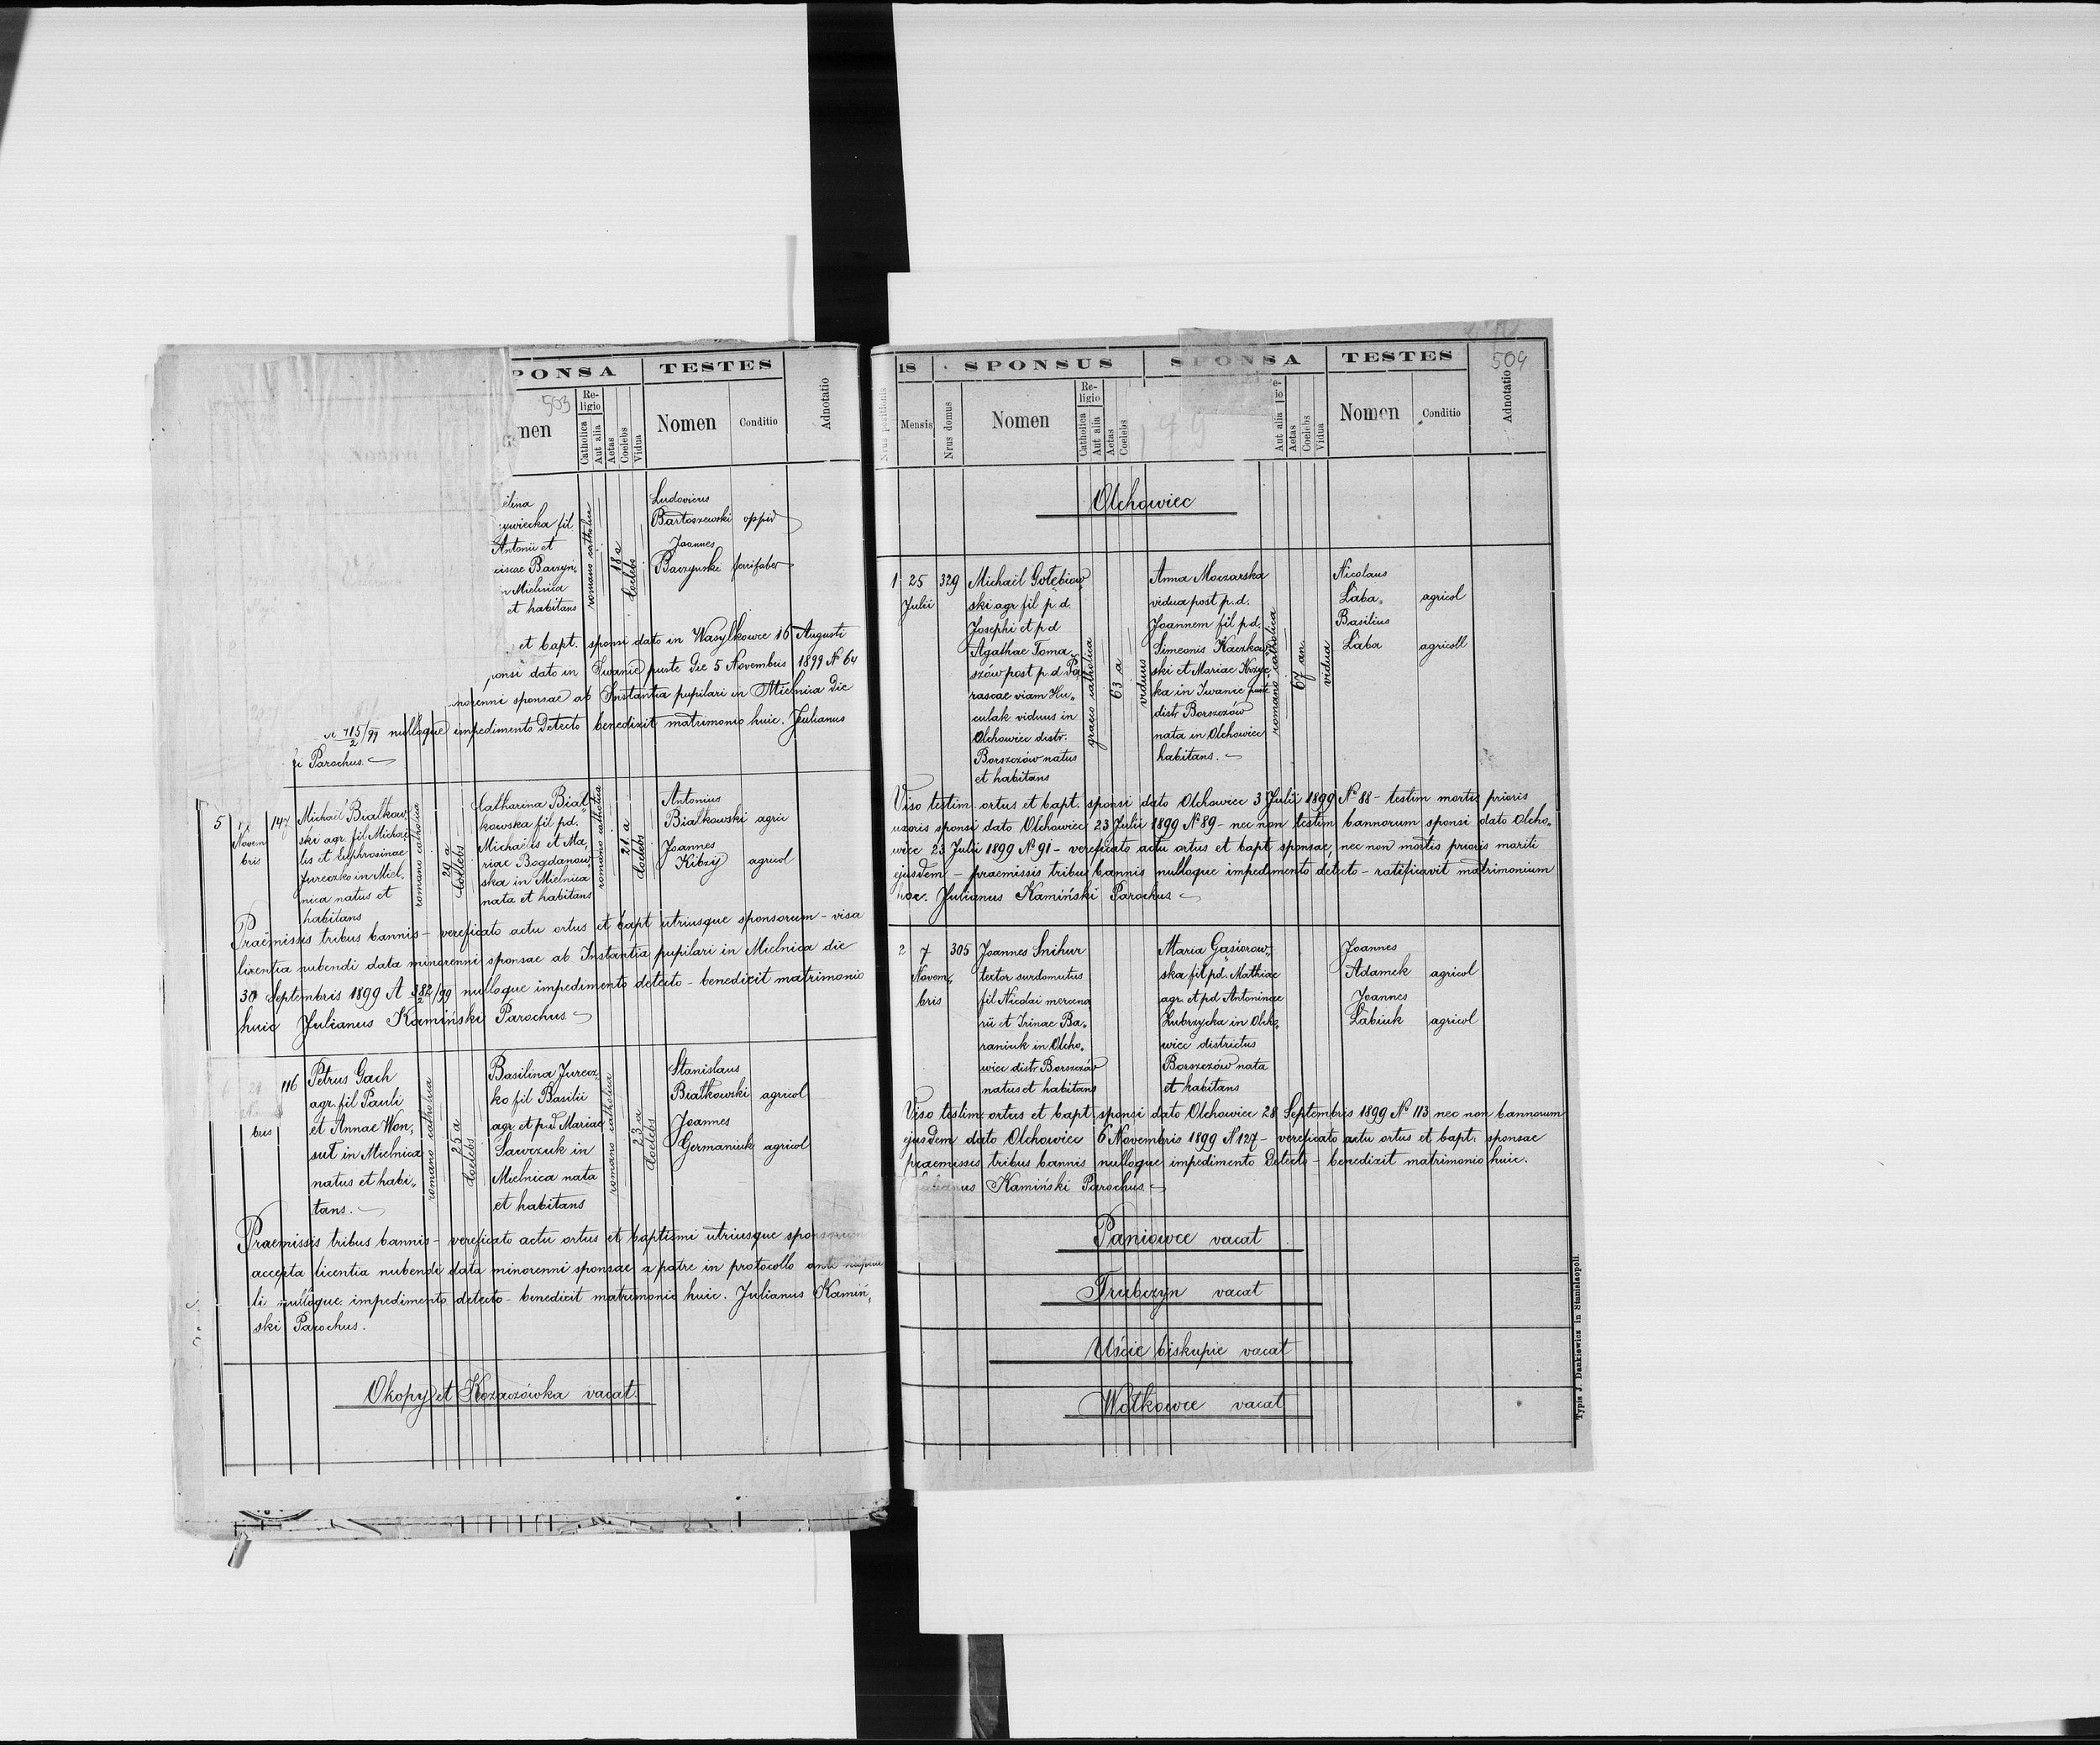 PONSA
TESTES
503
men
Re-
ligio
Catholica
Aut alia
Aetas
Coelebs
Vidua
Nomen
Conditio
Adnotatio
elina
ywiecka fil
Antonii et
ciscae Baczyn„
n Mielnica
et habitans
romano catholica
18 a
Coelebs
Ludovicus
Bartoszewski oppid
Joannes
Baczynski ferrifaber
et bapt. sponsi dato in Wasylkowce 16 Augusti
ponsi dato in Iwanie puste die 5 Novembris 1899 N 64
norenni sponsae ab Instantia pupilari in Mielnica die
715/2/99 nulloque impedimento detecto benedixit matrimonio huic. Julianus
i Parochus.
5
Novem
bris
147
Michael Białkow„
ski agr. fil Michae
lis et Euphrosinae
Jureczko in Miel„
nica natus et
habitans
romano catholica
Coelebs
Catharina Biał„
kowska fil pd.
Michaelis et Ma„
riae Bogdanow„
ska in Mielnica
nata et habitans
romano catholica
21 a
Coelebs
Antonius
Białkowski agric
Joannes
Kibzij agricol
Praemissis tribus bannis – vereficato actu ortus et bapt utriusque sponsorum – visa
licentia nubendi data minorenni sponsae ab Instantia pupilari in Mielnica die
30 Septembris 1899 A 382/2/99 nulloque impedimento detecto – benedicit matrimonio
huic Julianus Kamiński Parochus
bris
116
Petrus Gach
agr. fil Pauli
et Annae Won„
suł in Mielnica
natus et habi„
tans.
romano catholica
25 a
Coelebs
Basilina Jurecz„
ko fil Basilii
agr. et p.d Mariae
Sawczuk in
Mielnica nata
et habitans
romano catholica
23 a
Coelebs
Stanislaus
Białkowski agricol
Joannes
Germaniuk agricol
Praemissis tribus bannis – vereficato actu ortus et baptismi utriusque sponsorum
accepta licentia nubendi data minorenni sponsae a patre in protocollo ante
ti nulloque impedimento detecto – benedicit matrimonio huic. Julianus Kamiń„
ski Parochus.
Okopy et Kozaczówka vacat.
IS
SPONSUS
SPONSA
TESTES
504
Nrus positionis
Mensis
Nrus domus
Nomen
Re-
ligio
Catholica
Aut alia
Aetas
Coelebs
79
Aut alia
Aetas
Coelebs
Vidua
Nomen
Conditio
Adnotatio
Olchowiec
1 25
Julii
329
Michaël Gołębiow„
ski agr fil p.d.
Josephi et p d
Agathae Toma„
szów post p.d Pa„
rascae viam Hu„
culak viduus in
Olchowiec distr.
Borszczów natus
et habitans
graeco catholica
63 a
viduus
Anna Moczarska
vidua post p.d.
Joannem fil p.d.
Simeonis Kaczkow„
ski et Mariae Krzyc„
ka in Iwanie puste
distr. Borszczów
nata in Olchowiec
habitans.
romano catholica
67 an
vidua
Nicolaus
Łaba„ agricol
Basilius
Łaba agricoll
Viso testim. ortus et bapt. sponsi dato Olchowiec 3 Julii 1899 Nº 88 – testim mortis prioris
uxoris sponsi dato Olchowiec 23 Julii 1899 Nº 89 – nec non testim bannorum sponsi dato Olcho„
wiec 23 Julii 1899 Nº 91 – vereficato actu ortus et bapt sponsae, nec non mortis prioris mariti
ejusdem – praemissis tribus bannis nulloque impedimento detecto – ratificavit matrimonium
hoc. Julianus Kamiński Parochus
2 7
Novem„
bris
305
Joannes Snihur
tector surdomutus
fil Nicolai mercena
rii et Irinae Ba„
raniuk in Olcho„
wiec distr. Borszczów
natus et habitans
Maria Gąsiorow„
ska fil pd. Mathiae
agr. et pd Antoninae
Zubrzycka in Olcho„
wiec districtus
Borszczów nata
et habitans
Joannes
Adamek agricol
Joannes
Łabiuk agricol
Viso testim. ortus et bapt. sponsi dato Olchowiec 28 Septembris 1899 Nº 113 nec non bannorum
ejusdem dato Olchowiec 6 Novembris 1899 N 127 – vereficato actu ortus et bapt. sponsae
praemissis tribus bannis nulloque impedimento detecto – benedixit matrimonio huic.
Julianus Kamiński Parochus.
Paniowce vacat
Trubczyn vacat
Uście biskupie vacat
Wołkowce vacat
Typis J. Dankiewicz in Stanislaopoli.